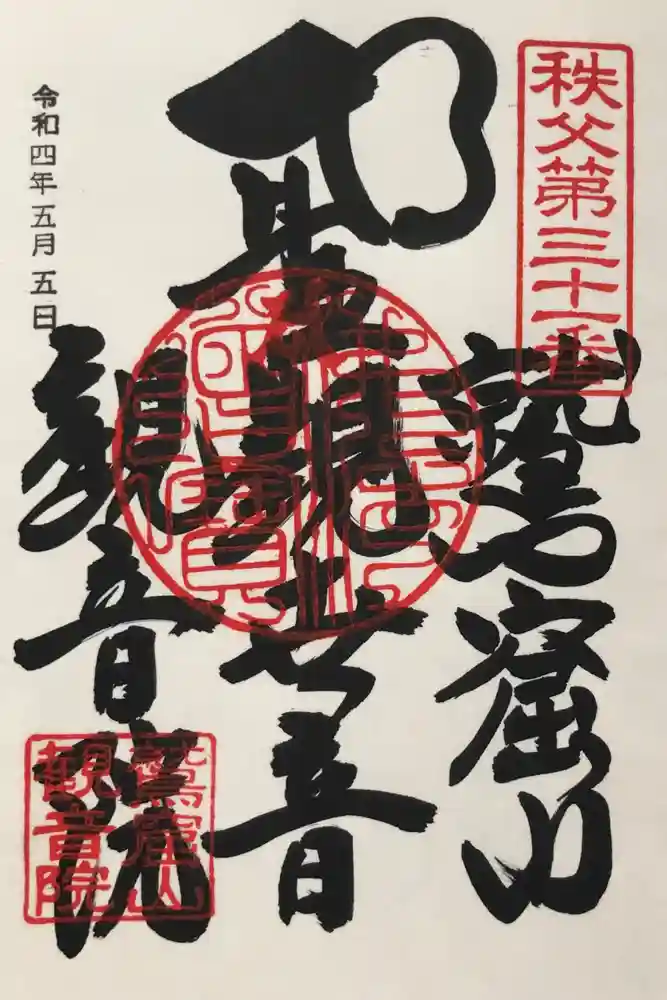 秩父第三十一番
鷲窟山
聖観世音
観音院
令和四年五月五日
鷲窟山
観音院